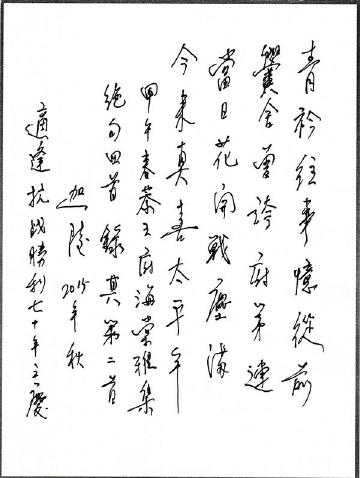 青衿往事憶從前
黌舍曾誇府第連
當日花開戰塵滿
今来真喜太平年
甲午春恭王府海棠雅集
絕句四首 錄其第二首
迦陵 2015年秋
適逢抗战勝利七十年之慶